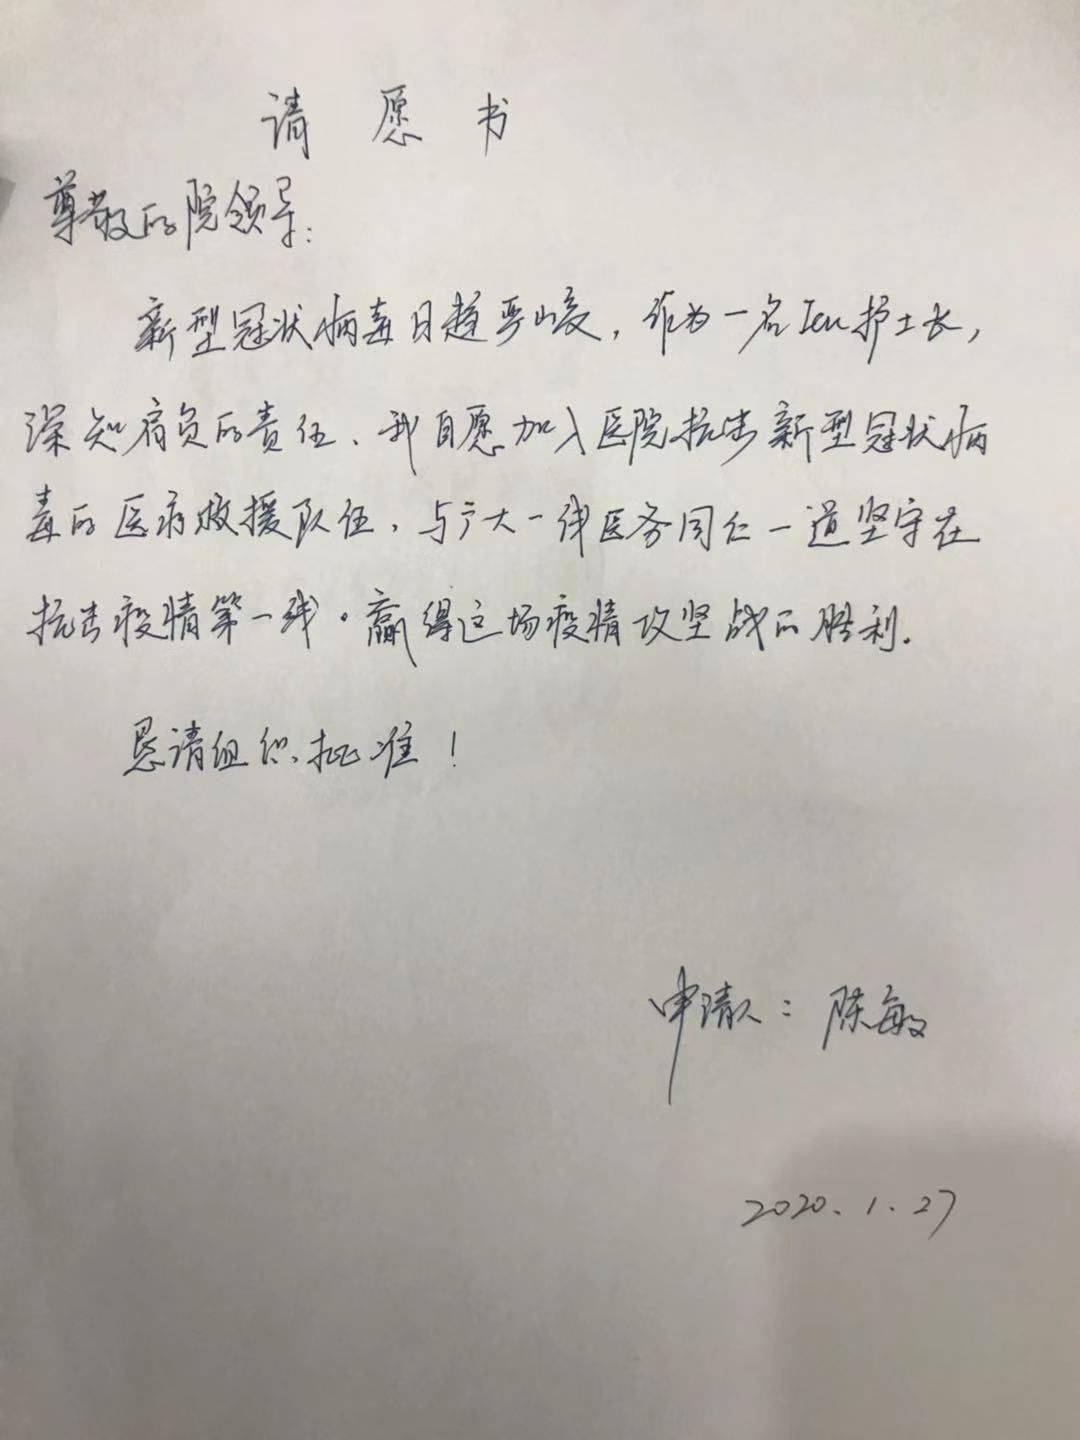 请愿书
尊敬的院领导：
新型冠状病毒日趋严峻，作为一名Icu护士长，
深知肩负的责任、我自愿加入医院抗击新型冠状病
毒的医疗救援队伍，与广大一线医务同仁一道坚守在
抗击疫情第一线。赢得这场疫情攻坚战的胜利.
恳请组织批准！
申请人：陈敏
2020.1.27